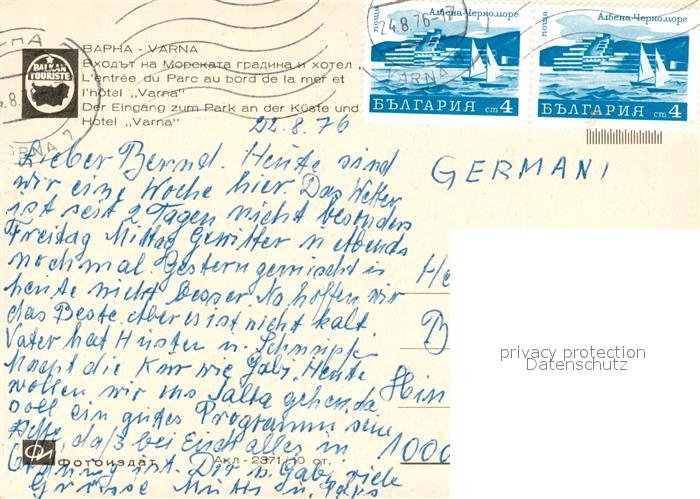 ВАРНА - VARNA
Входът на Морската градина и хотел
L'entrée du Parc au bord de la mer et
l'hôtel „Varna"
Der Eingang zum Park an der Küste und
Hotel „Varna"
BALKAN
TOURISTE
24.8.76
VARNA
поща Албена-Черноморе
БЪЛГАРИЯ ст. 4
поща Албена-Черноморе
БЪЛГАРИЯ ст. 4
22.8.76
Lieber Bernd. Heute sind
wir eine Woche hier. Das Wetter
ist seit 2 Tagen nicht besonders
Freitag Mittag Gewitter u abends
nochmal. Gestern gemischt u
heute nicht besser. Na hoffen wir
das Beste. Aber es ist nicht kalt.
Vater hat Husten u. Schnupfen
macht die Kur wie Gabi. Heute
wollen wir ins Jalta gehen, da
soll ein gutes Programm sein
Hoffe, daß bei Euch alles in
Ordnung ist. Dir u. Gabi viele
Grüsse Mutti u.
GERMANI
Hin
1000
privacy protection
Datenschutz
Фотоиздат Акл - 2371/10 от.